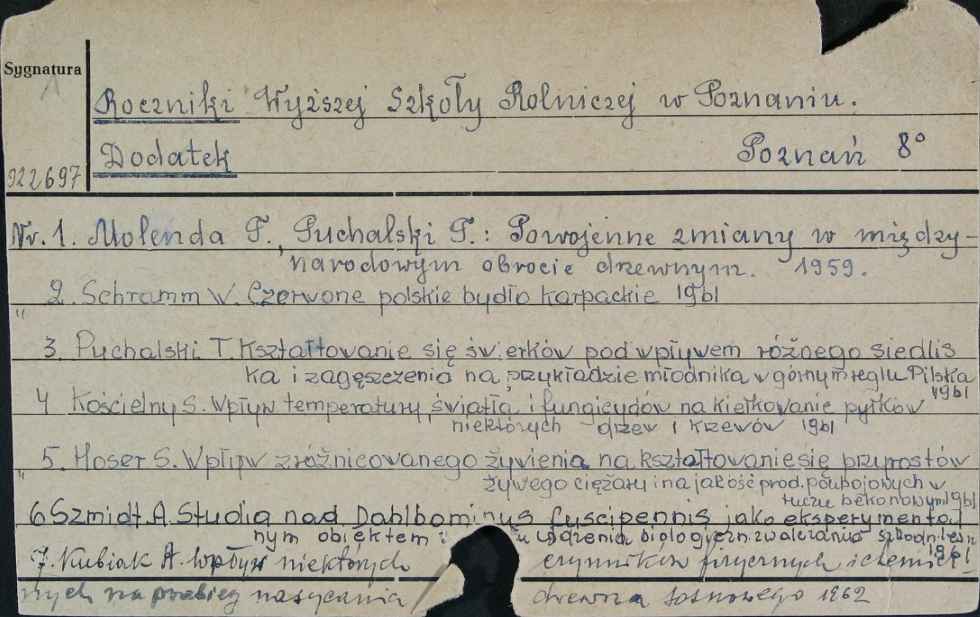 Sygnatura
Roczniki Wyższej Szkoły Rolniczej w Poznaniu.
Dodatek Poznań 8°
922697
Nr. 1. Molenda T., Puchalski T.: Powojenne zmiany w między-
narodowym obrocie drzewnym. 1959.
" 2. Schramm W. Czerwone polskie bydło karpackie 1961
3. Puchalski T. Kształtowanie się świerków pod wpływem różnego siedlis
ka i zagęszczenia na przykładzie młodnika w górnym reglu Pilska
1961
4 Kościelny S. Wpływ temperatury, światła i fungicydów na kiełkowanie pyłków
niektórych drzew i krzewów 1961
" 5. Hoser S. Wpływ zróżnicowanego żywienia na kształtowanie się przyrostów
żywego ciężaru i na jakość prod. poubojowych w
tuczu bekonowym 1961
6 Szmidt A. Studia nad Dahlbominus fuscipennis jako eksperymental
nym obiektem biologiczn. zwalczania szkodników
1961
7. Kubiak A. Wpływ niektórych czynników fizycznych i chemicz-
nych na przebieg nasycania drewna sosnowego 1962